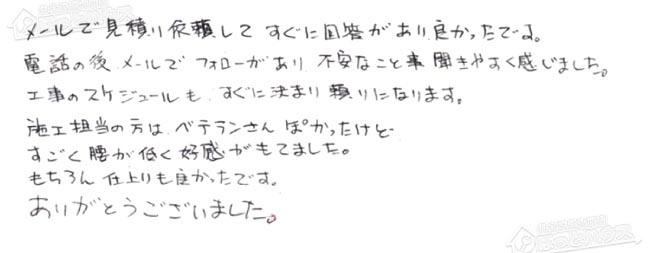 メールで見積り依頼して すぐに回答があり良かったです。
電話の後 メールで フォローがあり 不安なこと事 聞きやすく感じました。
工事のスケジュールも すぐに決まり 頼りになります。
施工担当の方は ベテランさん ぽかったけど
すごく 腰が 低く 好感がもてました。
もちろん 仕上りも良かったです。
ありがとうございました。